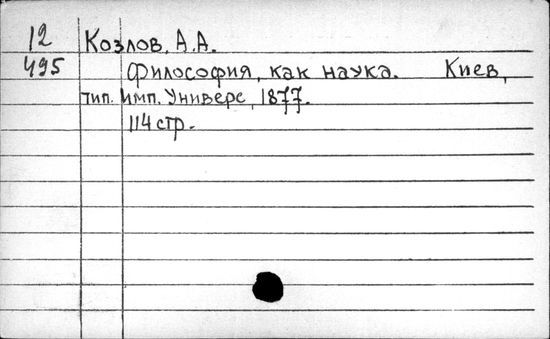 12 Козлов, А.А.
495 Философия, как наука. Киев,
тип. Имп. Универс, 1877.
114 стр.